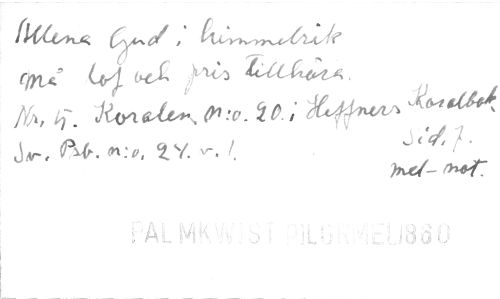 Allena Gud i himmelrik
må lof och pris tillhöra.
Nr. 5. Koralen n:o. 20. i Hæffners Koralbok
Sv. Psb. n:o. 24. v. 1. Sid. 7.
mel-not.
PALMKWIST PILGRMEL1860